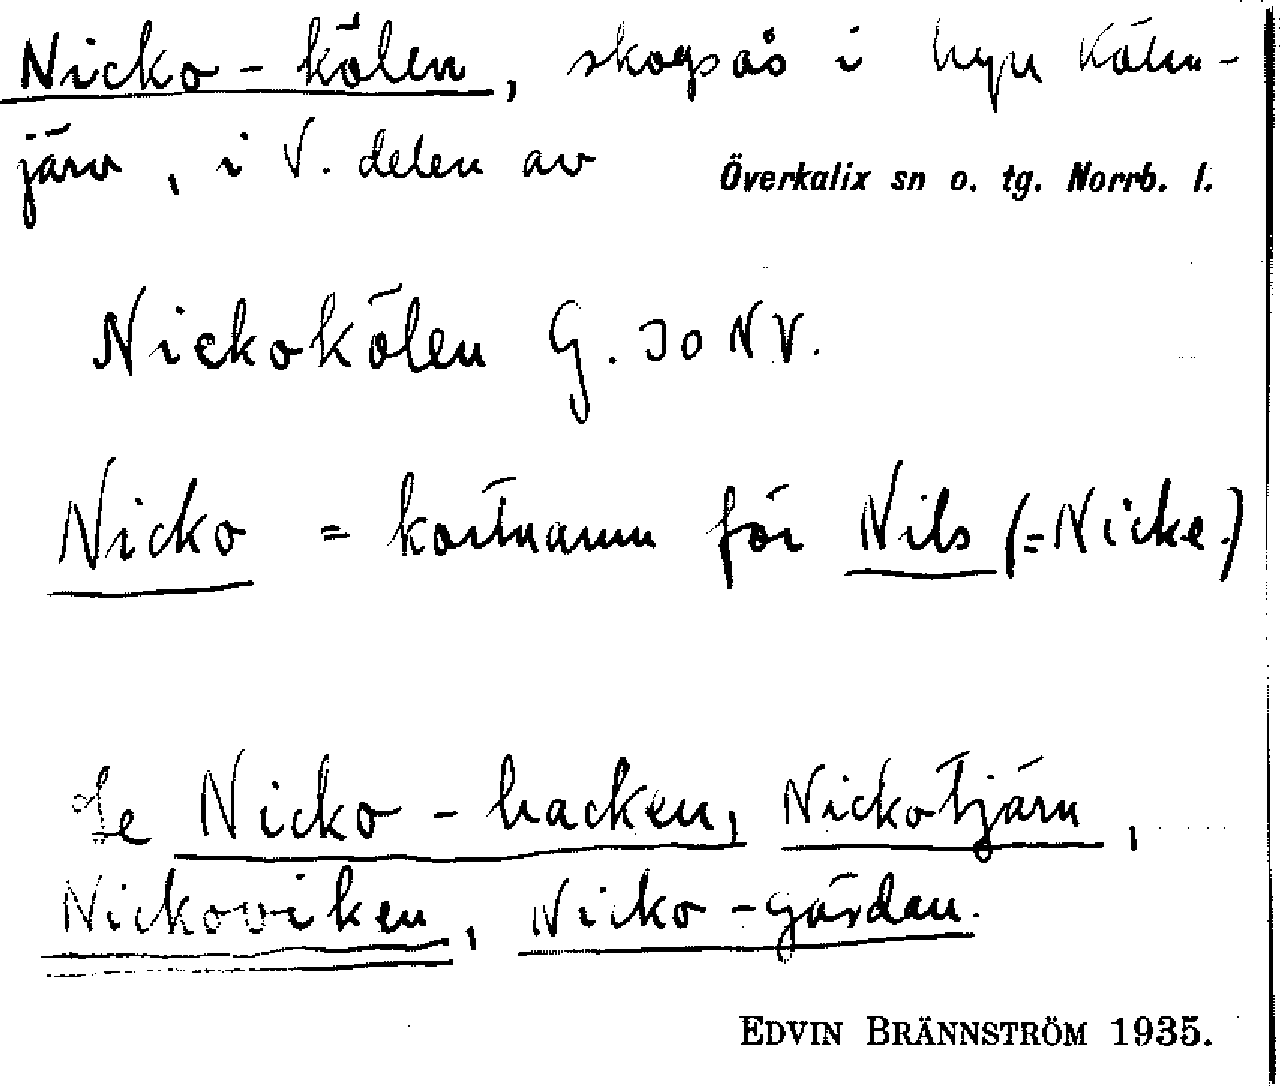 Nicko-kölen, skogsås i byn Kölm-
järv, i V. delen av Överkalix sn o. tg. Norrb. l.
Nickokölen G. 30 NV.
Nicko = kortnamn för Nils (=Nicke.)
Se Nicko-backen, Nickotjärn,
Nickoviken, Nicko-gärdan.
EDVIN BRÄNNSTRÖM 1935.